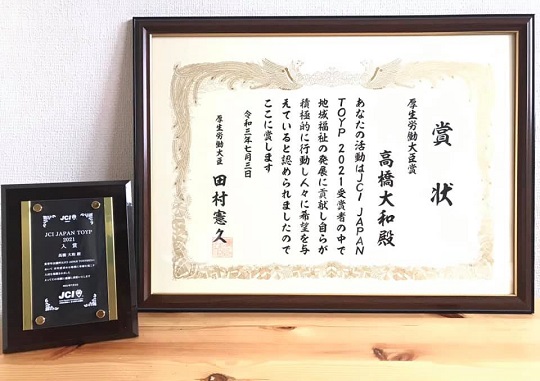 賞状
厚生労働大臣賞
高橋大和殿
あなたの活動はJCI JAPAN
TOYP 2021受賞者の中で
地域福祉の発展に貢献し自らが
積極的に行動し人々に希望を与
えていると認められましたので
ここに賞します
令和三年七月三日
厚生労働大臣
田村憲久
JCI
JCI JAPAN TOYP
2021
入賞
高橋 大和 殿
JCI